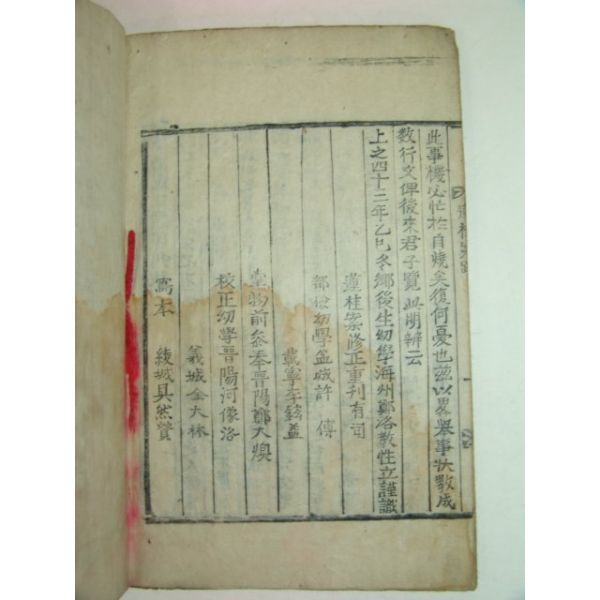 此事機必忙於自燒矣復何憂也玆以畧擧事狀敢成
数行文俾後來君子覽此明辨云
上之四十二年乙巳冬鄕後生幼學海州鄭洛敎性立謹識
薑桂案修正重刊有司
都檢幼學盆城許 傳
載寧李鉉益
掌物前參奉晋陽鄭大煥
校正幼學晋陽河像洛
義城金大林
寫本 綾城具然贊